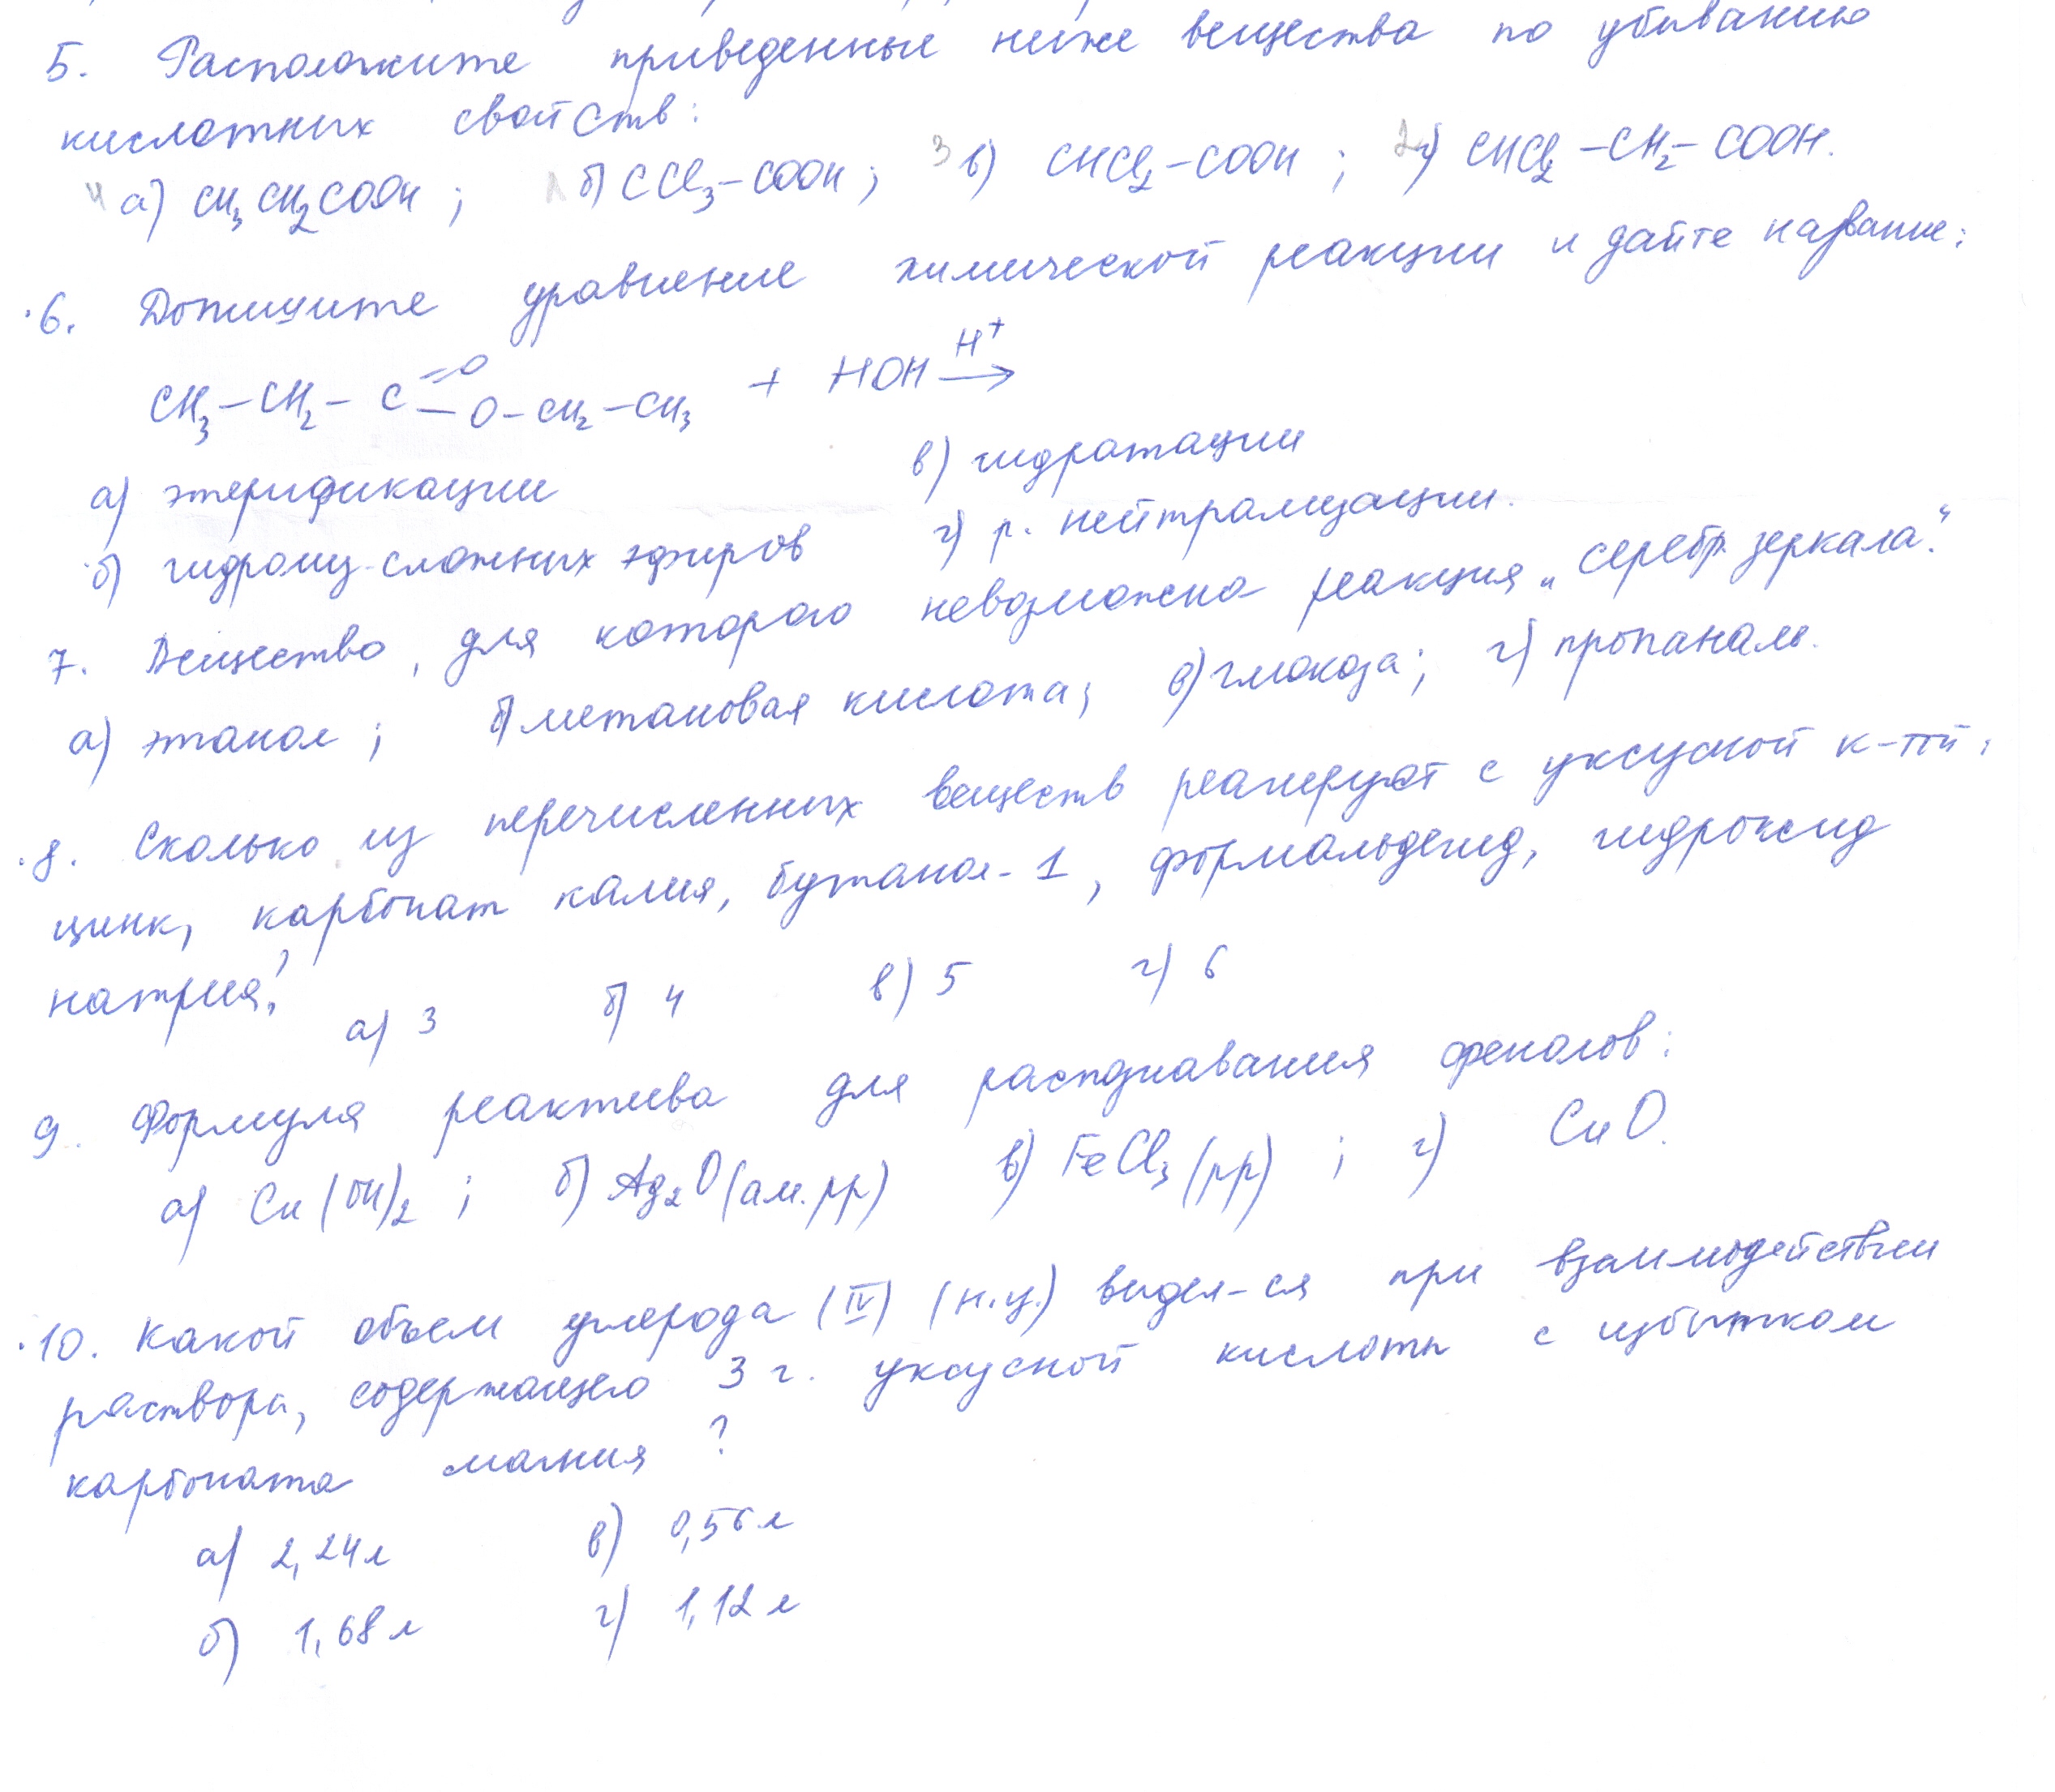 5. Расположите приведенные ниже вещества по убыванию
кислотных свойств:
4 а) CH3CH2COOH; 1 б) CCl3–COOH; 3 в) CHCl2–COOH; 2 г) CHCl2–CH2–COOH.
6. Допишите уравнение химической реакции и дайте название:
CH3–CH2–C=O–O–CH2–CH3 + HOH H+→
а) этерификации в) гидратации
б) гидролиз сложных эфиров г) р. нейтрализации.
7. Вещество, для которого невозможна реакция „серебр. зеркала".
а) этанол; б) метановая кислота; в) глюкоза; г) пропаналь.
8. Сколько из перечисленных веществ реагируют с уксусной к-той:
цинк, карбонат калия, бутанол-1, формальдегид, гидроксид
натрия?
а) 3 б) 4 в) 5 г) 6
9. Формула реактива для распознавания фенолов:
а) Cu(OH)2; б) Ag2O(ам. рр) в) FeCl3(рр); г) CuO.
10. Какой объем углерода (IV) (н.у.) выдел-ся при взаимодействии
раствора, содержащего 3 г. уксусной кислоты с избытком
карбоната магния?
а) 2,24л в) 0,56л
б) 1,68л г) 1,12л